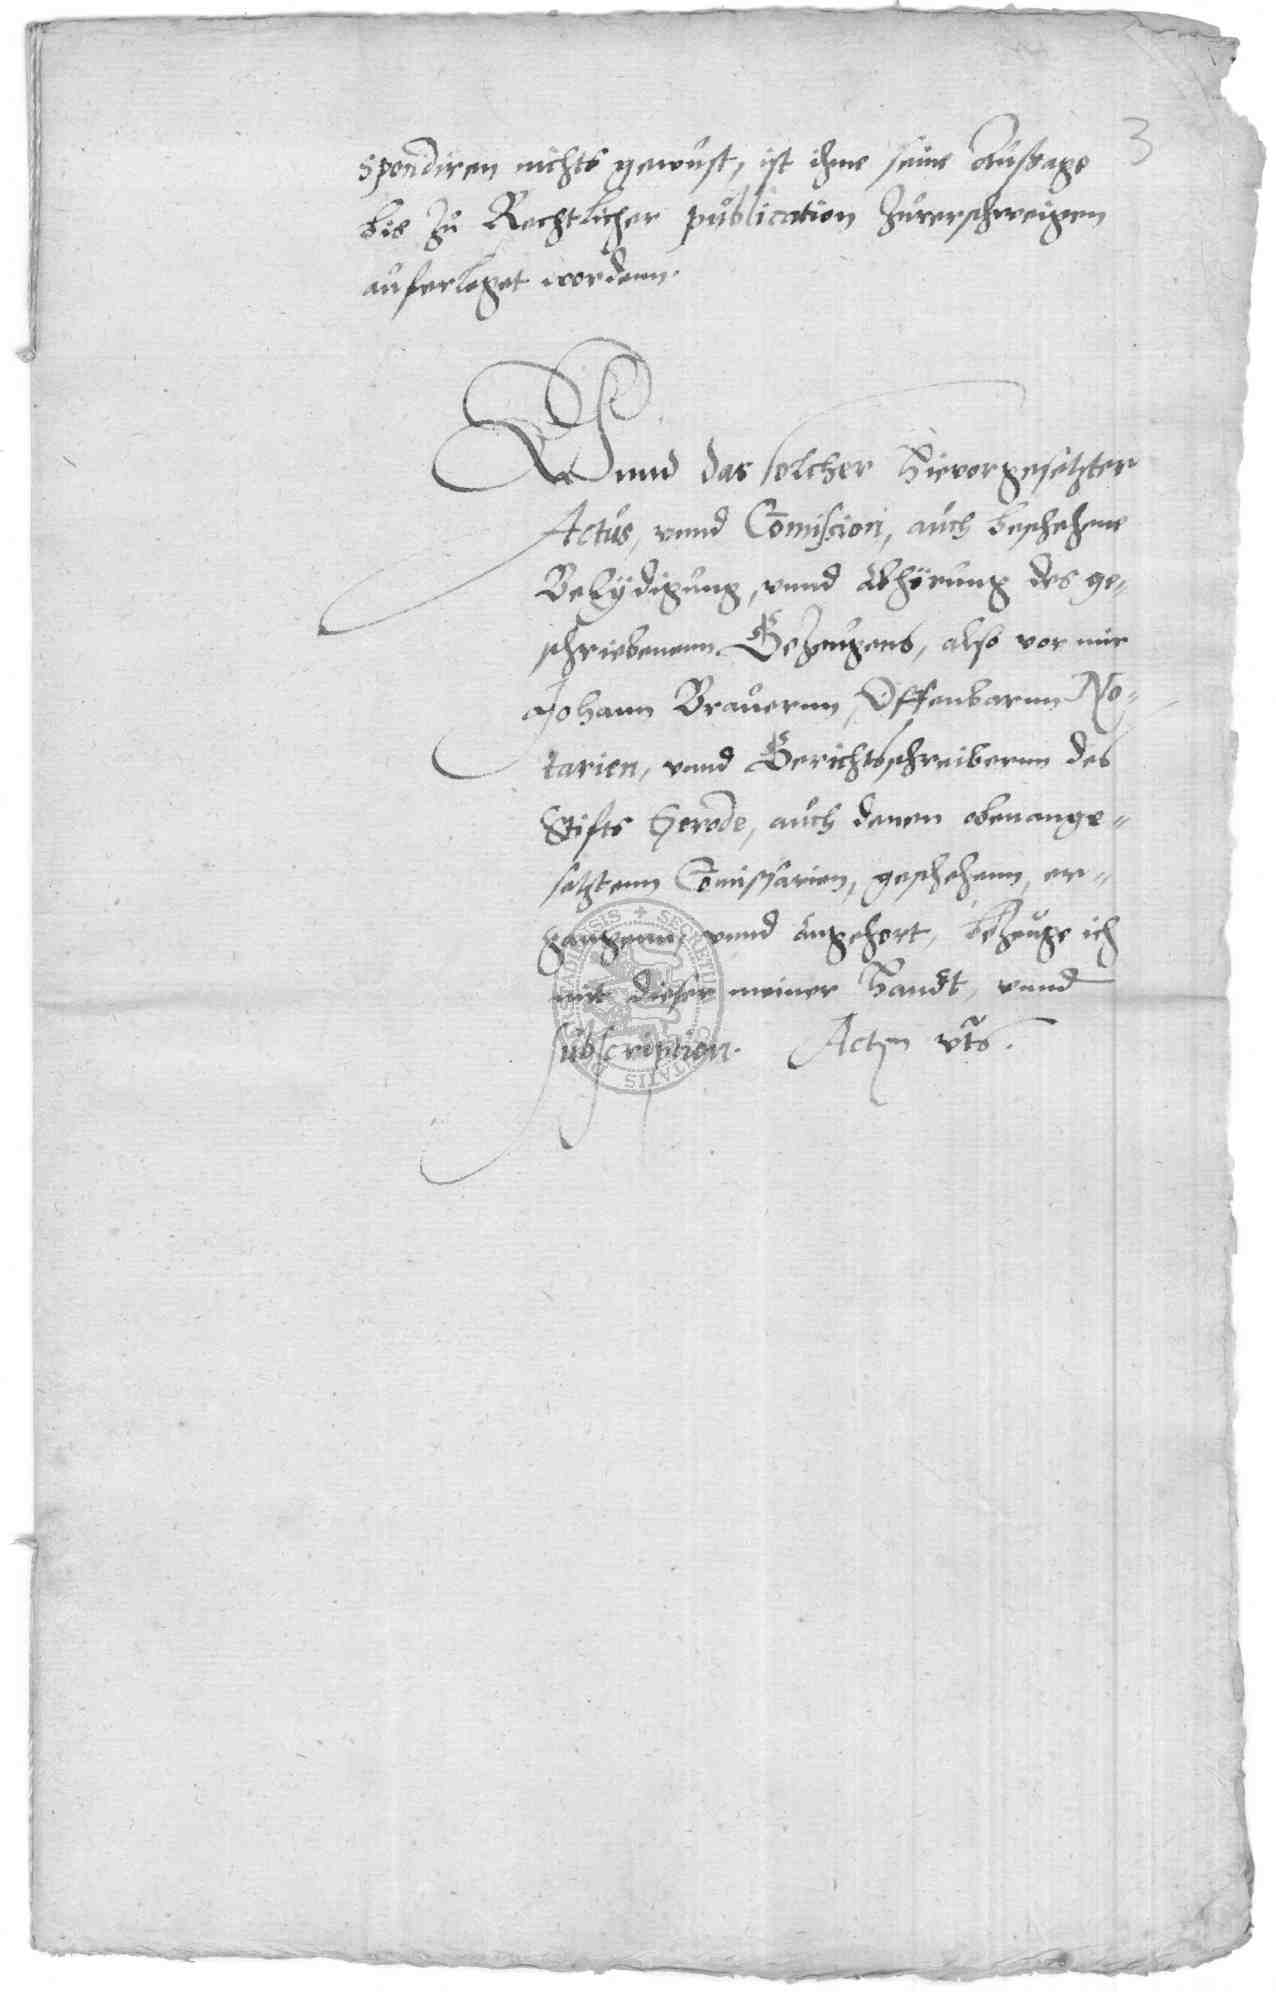 3
spondiren nichts gewust, ist ihme seine Aussage
bis zu Rechtlicher publication zuverschweigen
auferleget wordenn.
Vnnd das solcher Hievorgesetzter
Actus, vnnd Comission, auch beschehene
Beeÿdigung, vnnd Abhörung des ge-
schriebenenn Gezeugens, also vor mir
Johann Brauernn, Offenbarnn No-
tarien, vnnd Gerichtsschreibernn des
Stifts Gerode, auch denen obenange-
setztenn Comissarien, geschehenn, er-
gangenn, vnnd Angehort, bezeuge ich
mit dieser meiner Handt, vnnd
subscription. Actm vts.
SECRETUM